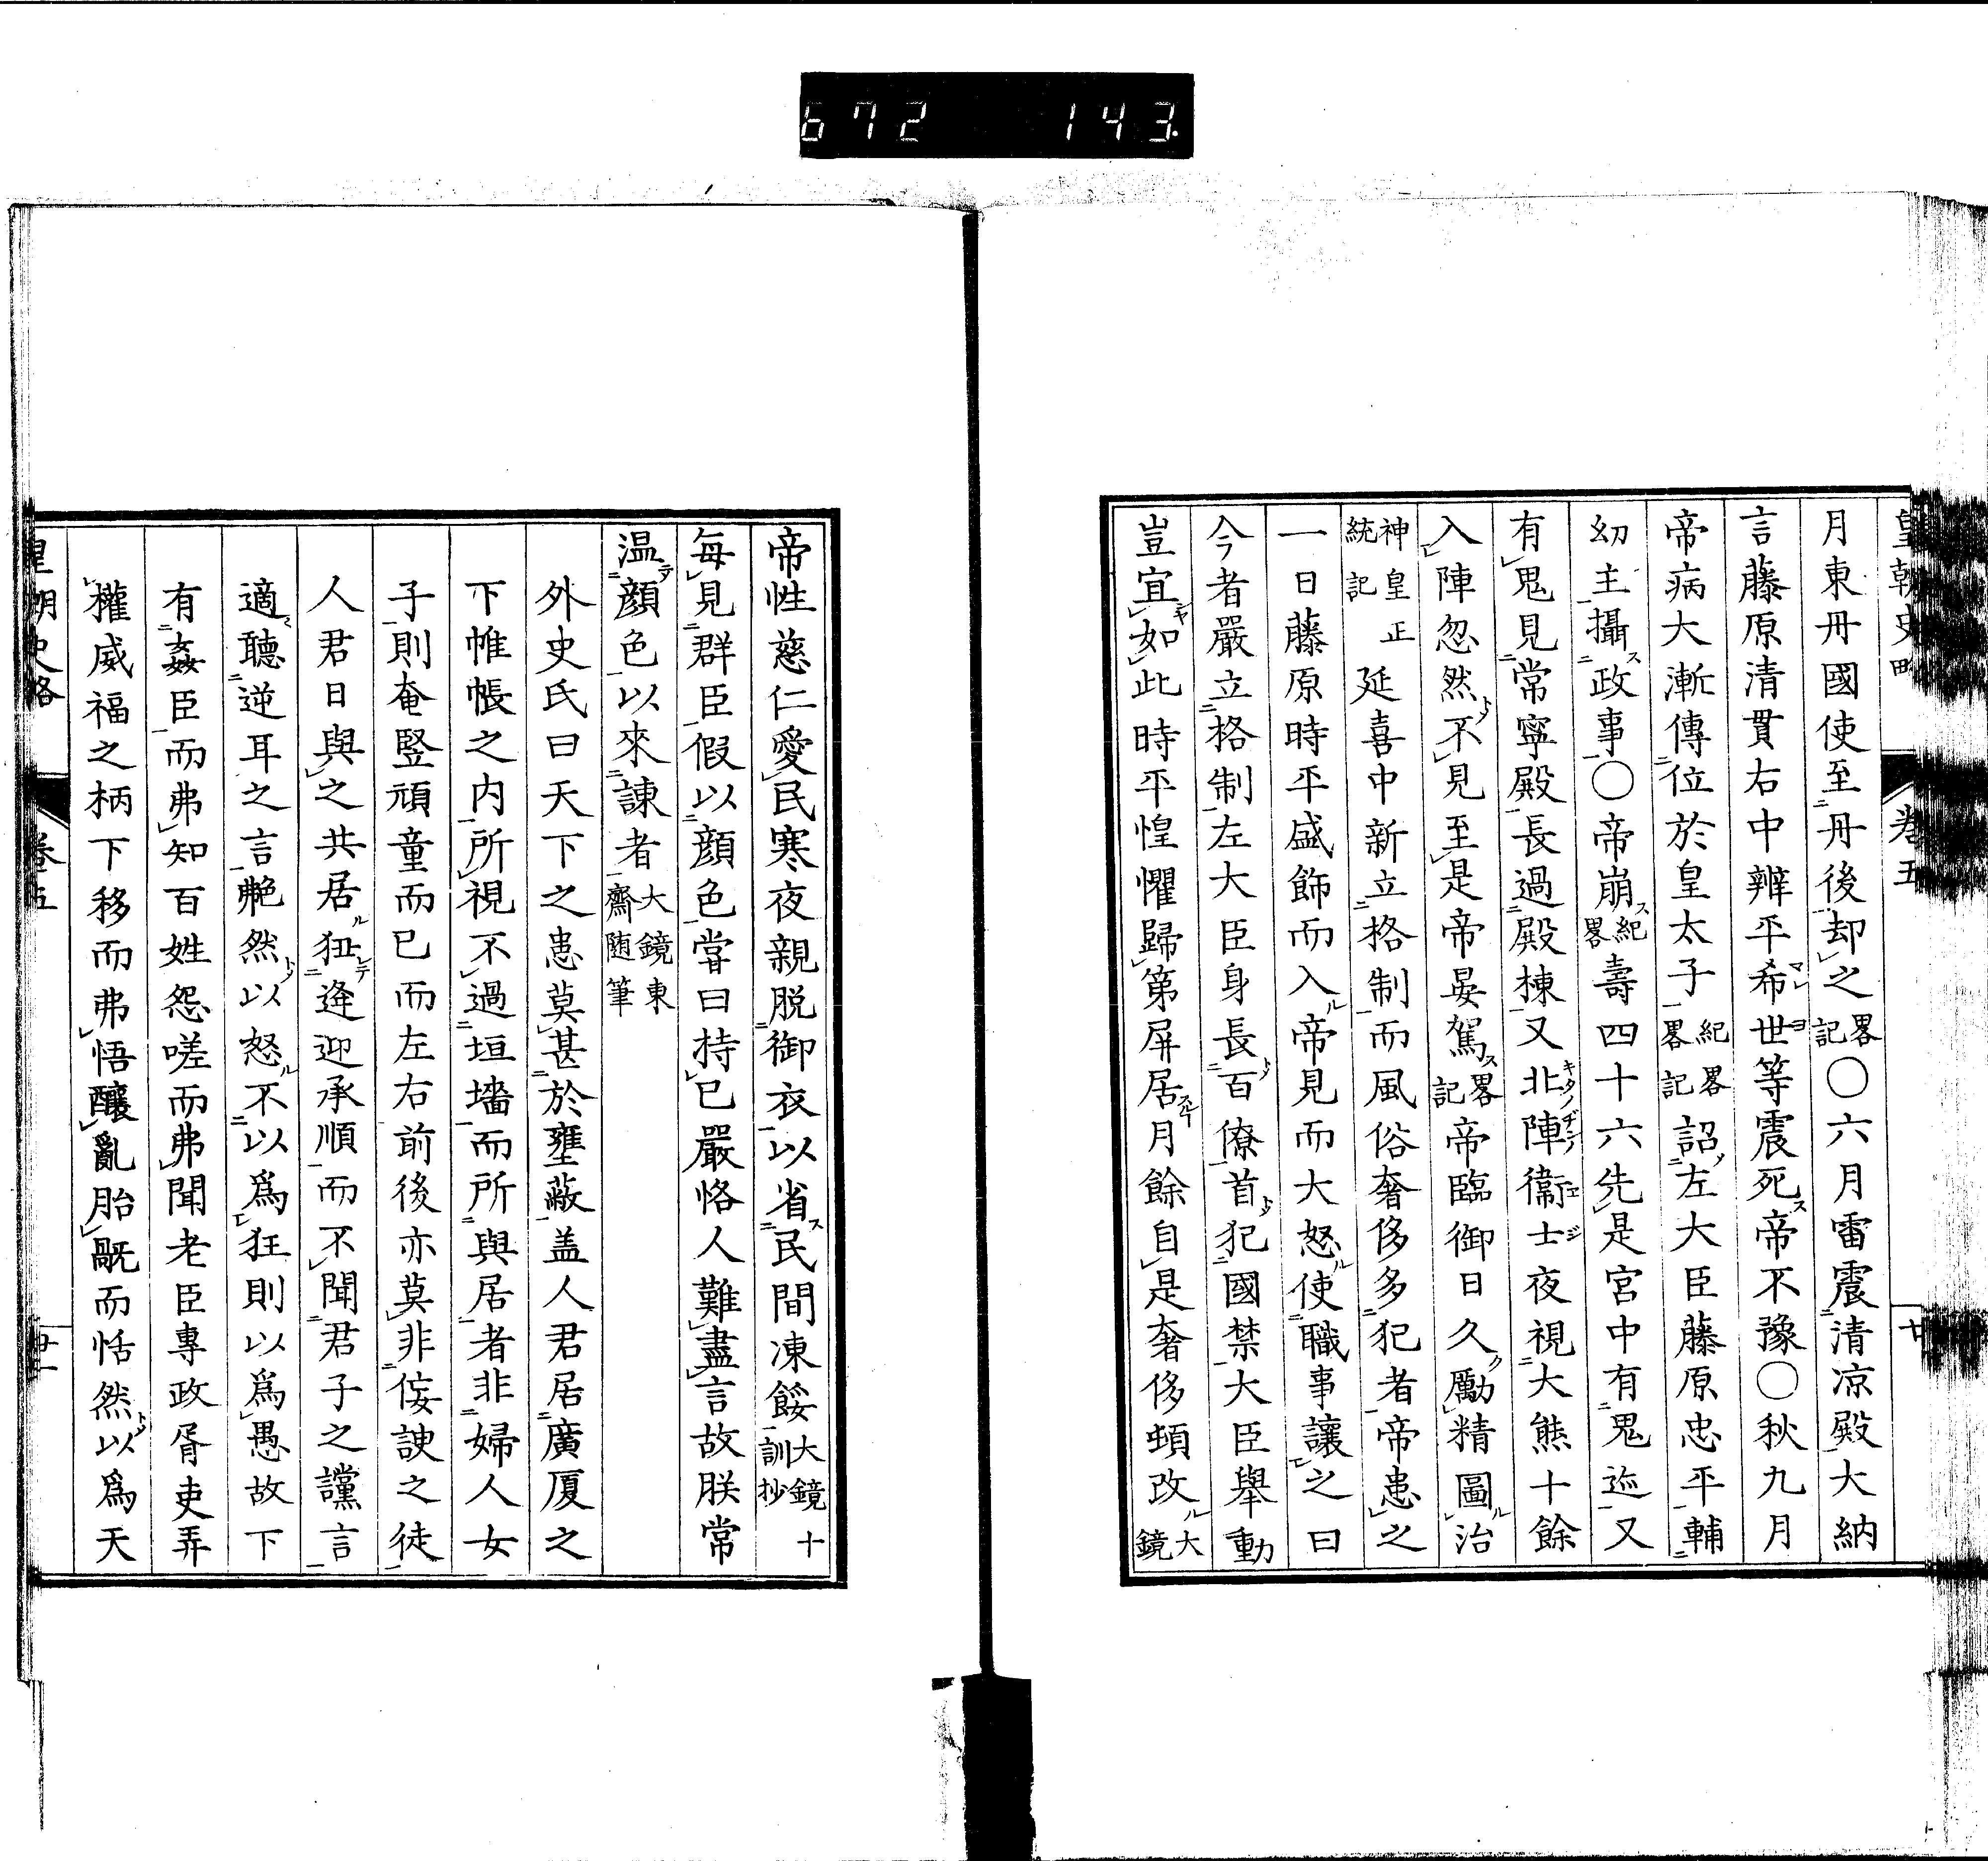 672 143
皇朝史略 卷五 廿
月東丹國使至丹後却之畧記○六月雷震清凉殿大納
言藤原清貫右中辨平希世等震死帝不豫○秋九月
帝病大漸傳位於皇太子紀畧畧記詔左大臣藤原忠平輔
幼主攝政事○帝崩紀畧壽四十六先是宮中有鬼巡又
有鬼見常寧殿長過殿棟又北陣衞士夜視大熊十餘
入陣忽然不見至是帝晏駕畧記帝臨御日久勵精圖治
神皇正統記延喜中新立格制而風俗奢侈多犯者帝患之
一日藤原時平盛飾而入帝見而大怒使職事讓之曰
今者嚴立格制左大臣身長百僚首犯國禁大臣舉動
豈宜如此時平惶懼歸第屏居月餘自是奢侈頓改大鏡
帝性慈仁愛民寒夜親脱御衣以省民間凍餒大鏡十訓抄
每見群臣假以顔色嘗曰持已嚴恪人難盡言故朕常
温顔色以來諫者大鏡東齋随筆
外史氏曰天下之患莫甚於壅蔽盖人君居廣厦之
下帷帳之内所視不過垣墻而所與居者非婦人女
子則奄豎頑童而已而左右前後亦莫非侫諛之徒
人君日與之共居狃逢迎承順而不聞君子之讜言
適聽逆耳之言艴然以怒不以爲狂則以爲愚故下
有姦臣而弗知百姓怨嗟而弗聞老臣專政胥吏弄
權威福之柄下移而弗悟釀亂胎㽅而恬然以爲天
皇朝史略 卷五 廿一